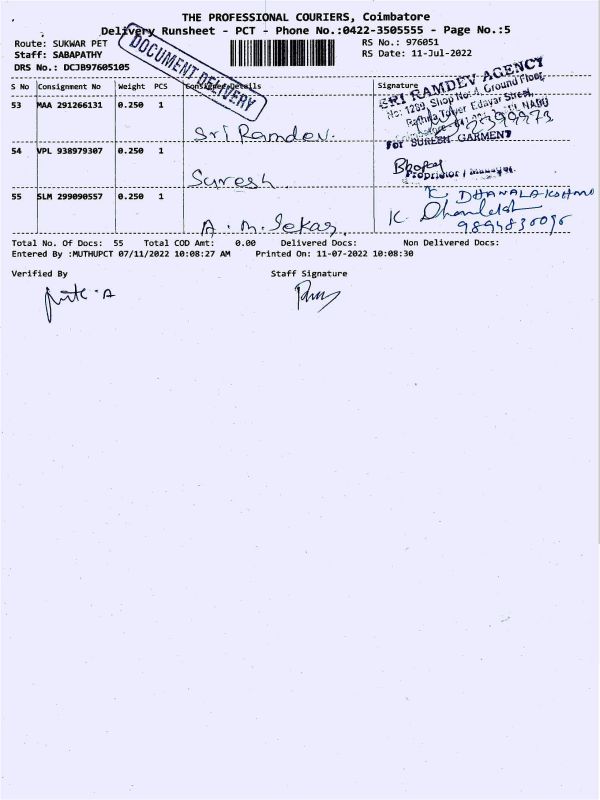 THE PROFESSIONAL COURIERS, Coimbatore
Delivery Runsheet - PCT - Phone No.:0422-3505555 - Page No.:5
Route: SUKWAR PET
RS No.: 976051
Staff: SABAPATHY
RS Date: 11-Jul-2022
DRS No.: DCJB97605105
DOCUMENT DELIVERY
S No Consignment No Weight PCS Consignee Details Signature
53 MAA 291266131 0.250 1
Sri Ramdev.
SRI RAMDEV AGENCY
No: 1269, Shop No: 4, Ground Floor,
Edayar Street,
54 VPL 938979307 0.250 1
Suresh
For SURESH GARMENT
Proprietor / Manager
55 SLM 299090557 0.250 1
A. M. Sekar.
K.
Total No. Of Docs: 55 Total COD Amt: 0.00 Delivered Docs: Non Delivered Docs:
Entered By :MUTHUPCT 07/11/2022 10:08:27 AM Printed On: 11-07-2022 10:08:30
Verified By Staff Signature